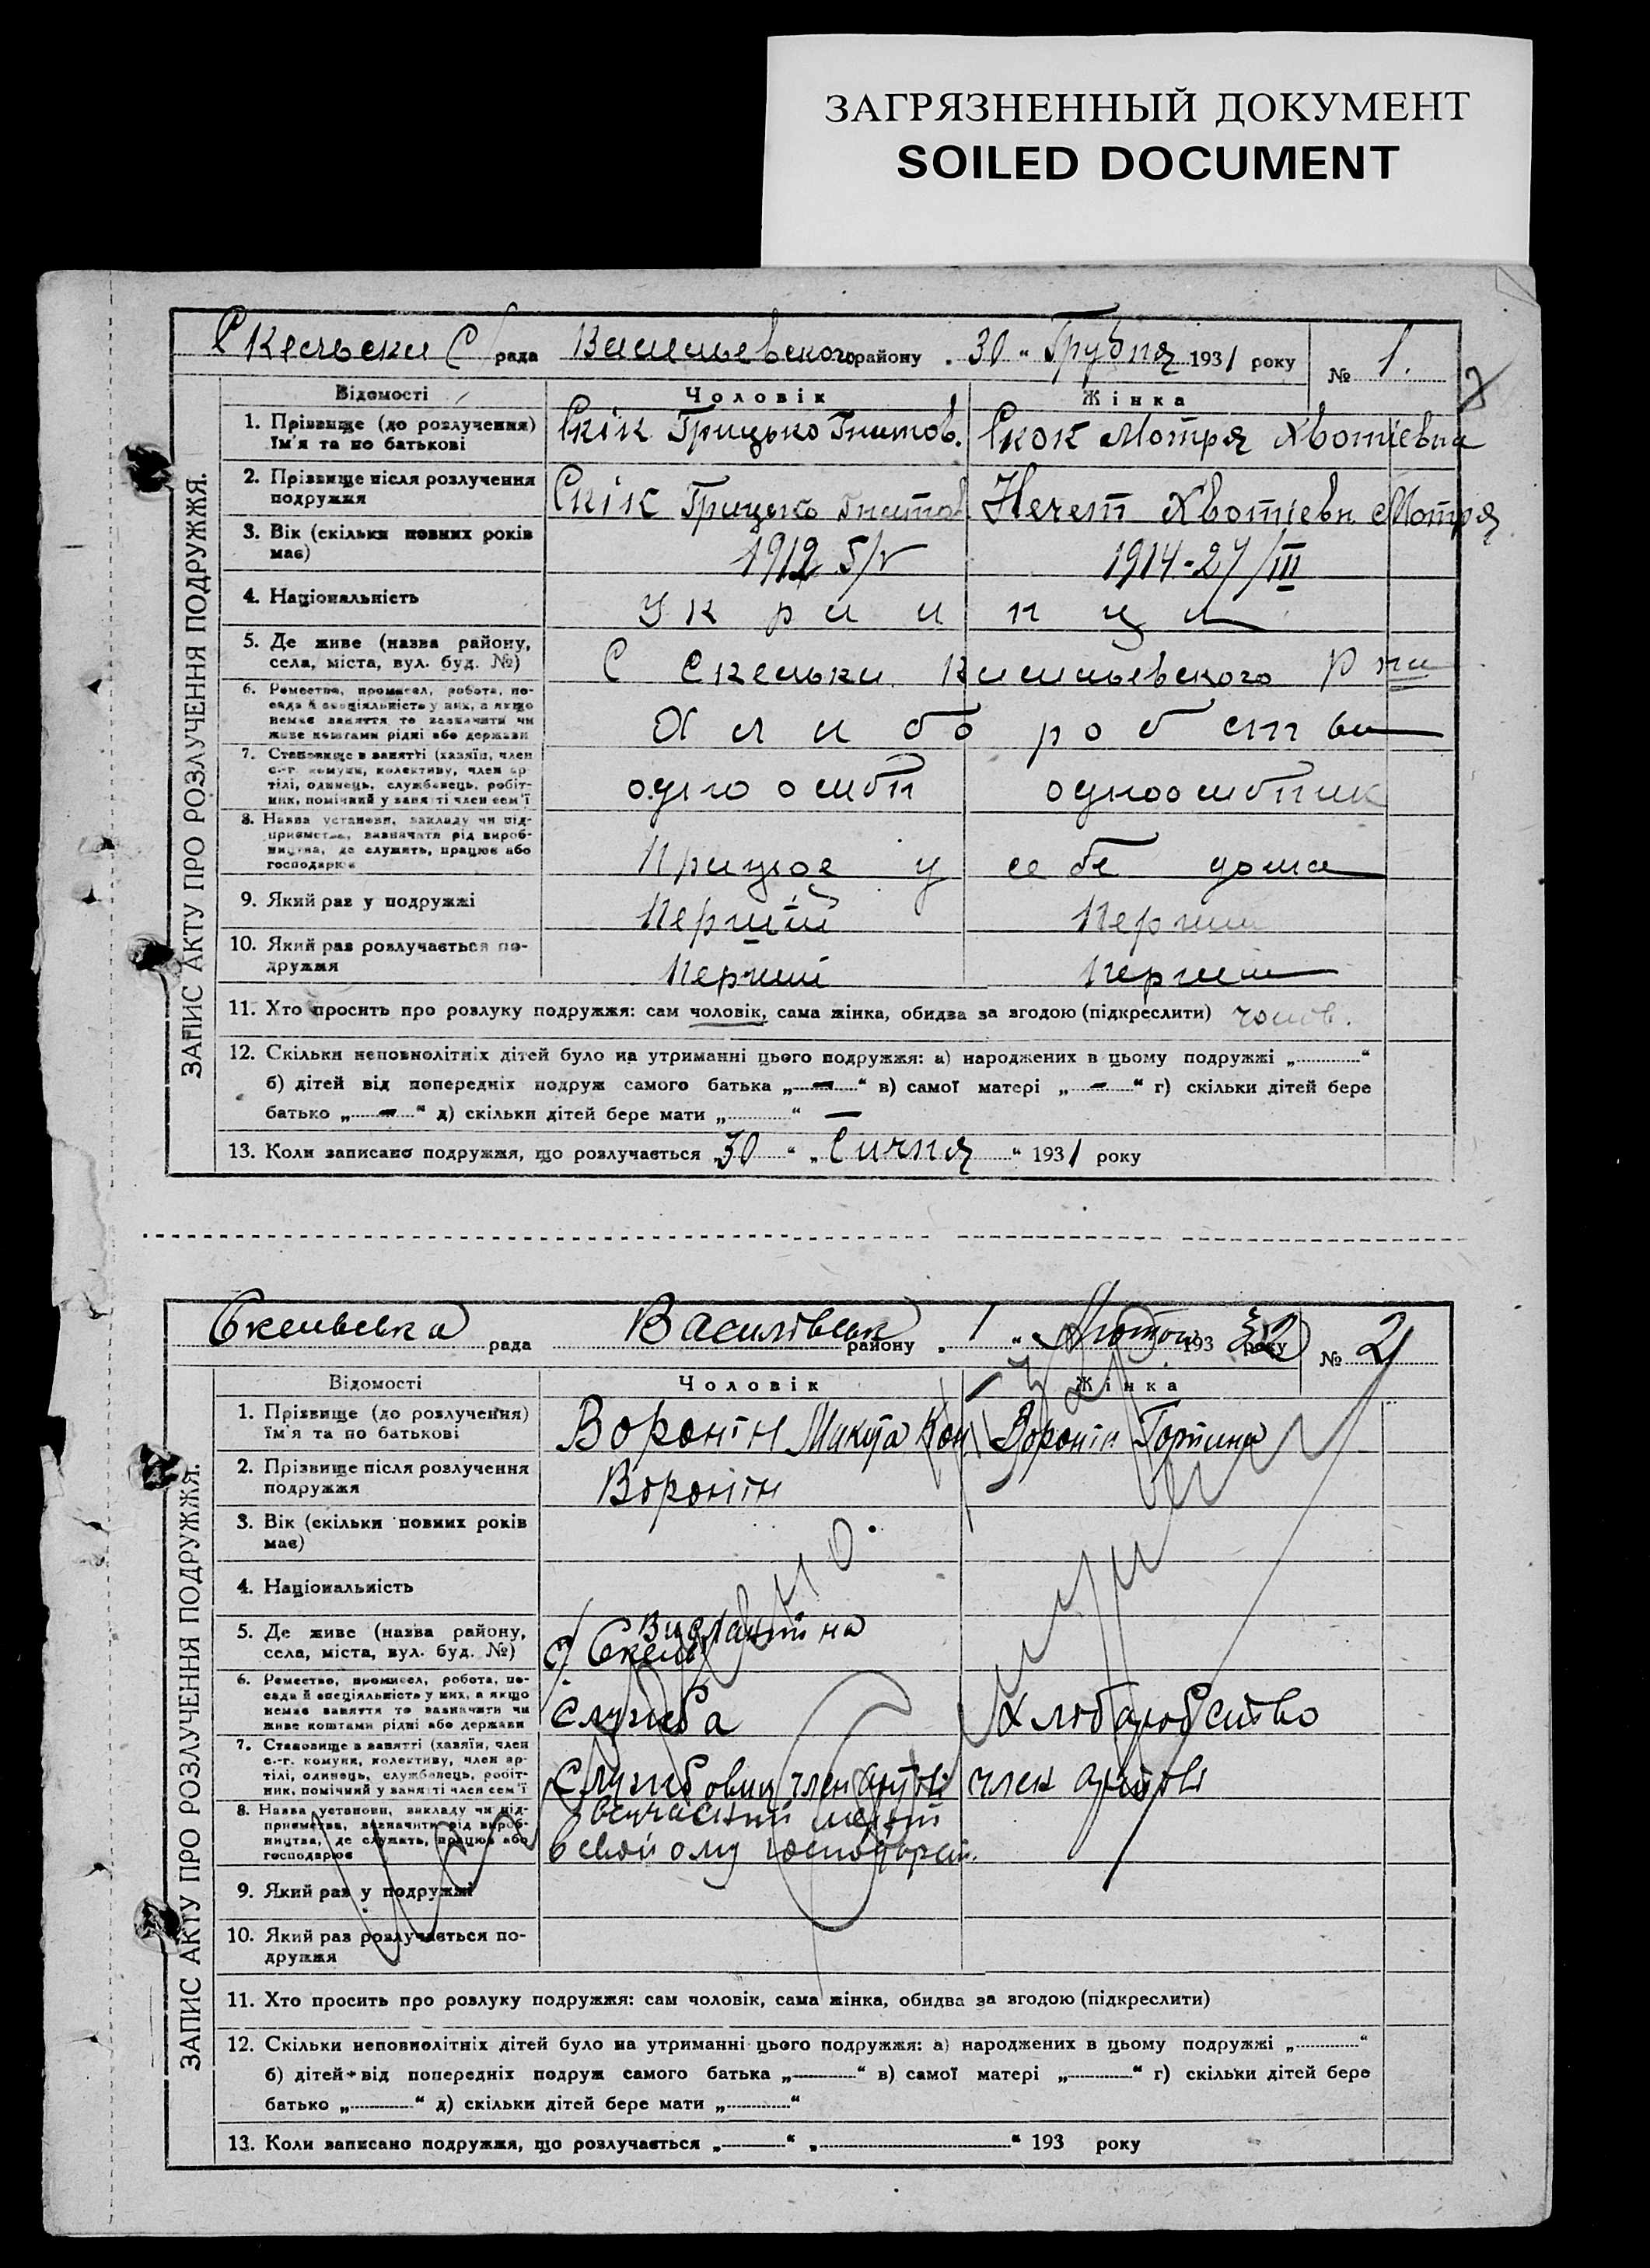 ЗАГРЯЗНЕННЫЙ ДОКУМЕНТ
SOILED DOCUMENT
ЗАПИС АКТУ ПРО РОЗЛУЧЕННЯ ПОДРУЖЖЯ.
рада района району „30“ Грудня 1931 року № 1.
Відомості Чоловік Жінка
1. Прізвище (до розлучення) Скік Грицько Гнатов. Скок Мотря Хвотіевна
їм'я та по батькові
2. Прізвище після розлучення Скік Грицько Гнатов Нечет Хвотіевн Мотря
подружжя
3. Вік (скільки повних років 1912 5/V 1914-27/III
має)
4. Національність Украинци
5. Де живе (назва району, С Скельки Васильевского р на
села, міста, вул. буд. №)
6. Ремество, промисел, робота, по-
сада й спеціяльність у них, а якщо
немає заняття то зазначити чи Хлиборобства
живе коштами рідні або держави
7. Становище в занятті (хазяїн, член
с.-г. комуни, колективу, член ар-
тілі, одинець, службовець, робіт- одноосибн одноосибник
ник, помічний у занятті член сем'ї
8. Назва установи, закладу чи під-
приємства, зазначити рід вироб-
ництва, де служить, працює або Працюе у себе дома
господарює
9. Який раз у подружжі Перший Перши
10. Який раз розлучається по- Перший Перши
дружжя
11. Хто просить про розлуку подружжя: сам чоловік, сама жінка, обидва за згодою (підкреслити) чолов.
12. Скільки неповнолітніх дітей було на утриманні цього подружжя: а) народжених в цьому подружжі „ “
б) дітей від попередніх подруж самого батька „ — “ в) самої матері „ — “ г) скільки дітей бере
батько „ — “ д) скільки дітей бере мати „ “ —
13. Коли записано подружжя, що розлучається „30“ „Сичня“ 1931 року
ЗАПИС АКТУ ПРО РОЗЛУЧЕННЯ ПОДРУЖЖЯ.
Скельвська рада Василівськ району „1“ Лютого 193 32 року № 2
Відомості Чоловік Жінка
1. Прізвище (до розлучення) Воронін Микита Кон Воронін Горпина
їм'я та по батькові
2. Прізвище після розлучення Воронін
подружжя
3. Вік (скільки повних років
має)
4. Національність
5. Де живе (назва району,
села, міста, вул. буд. №) с. Скельк
6. Ремество, промисел, робота, по-
сада й спеціяльність у них, а якщо
немає заняття то зазначити чи Служба Хлюборобство
живе коштами рідні або держави
7. Становище в занятті (хазяїн, член
с.-г. комуни, колективу, член ар-
тілі, одинець, службовець, робіт- Службовиц член артілі член артілі
ник, помічний у занятті член сем'ї
8. Назва установи, закладу чи під-
приємства, зазначити рід вироб-
ництва, де служить, працює або в свойому господарст.
господарює
9. Який раз у подружжі
10. Який раз розлучається по-
дружжя
11. Хто просить про розлуку подружжя: сам чоловік, сама жінка, обидва за згодою (підкреслити)
12. Скільки неповнолітніх дітей було на утриманні цього подружжя: а) народжених в цьому подружжі „ “
б) дітей від попередніх подруж самого батька „ “ в) самої матері „ “ г) скільки дітей бере
батько „ “ д) скільки дітей бере мати „ “
13. Коли записано подружжя, що розлучається „ “ „ “ 193 року